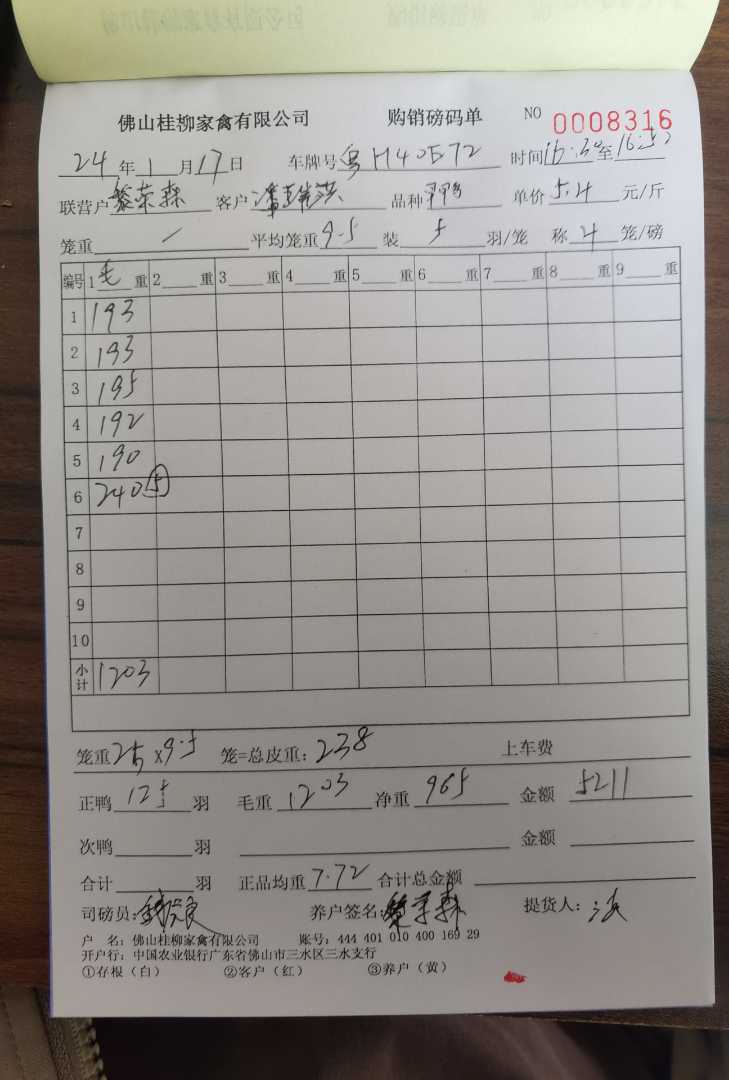 佛山桂柳家禽有限公司 购销磅码单 NO 0008316
24年1月17日 车牌号粤H40E72 时间16:30至16:52
联营户黎荣森 客户潘 洪 品种 鸭 单价5.4元/斤
笼重 / 平均笼重9.5 装5羽/笼 称4笼/磅
编号 1毛重 2重 3重 4重 5重 6重 7重 8重 9重
1 193
2 193
3 195
4 192
5 190
6 240⑤
7
8
9
10
小计 1203
笼重25x9.5笼=总皮重:238 上车费
正鸭125羽 毛重1203净重965 金额5211
次鸭 羽 金额
合计 羽 正品均重7.72合计总金额
司磅员: 养户签名:黎荣森 提货人:
户 名:佛山桂柳家禽有限公司 账号:444 401 010 400 169 29
开户行:中国农业银行广东省佛山市三水区三水支行
①存根(白) ②客户(红) ③养户(黄)